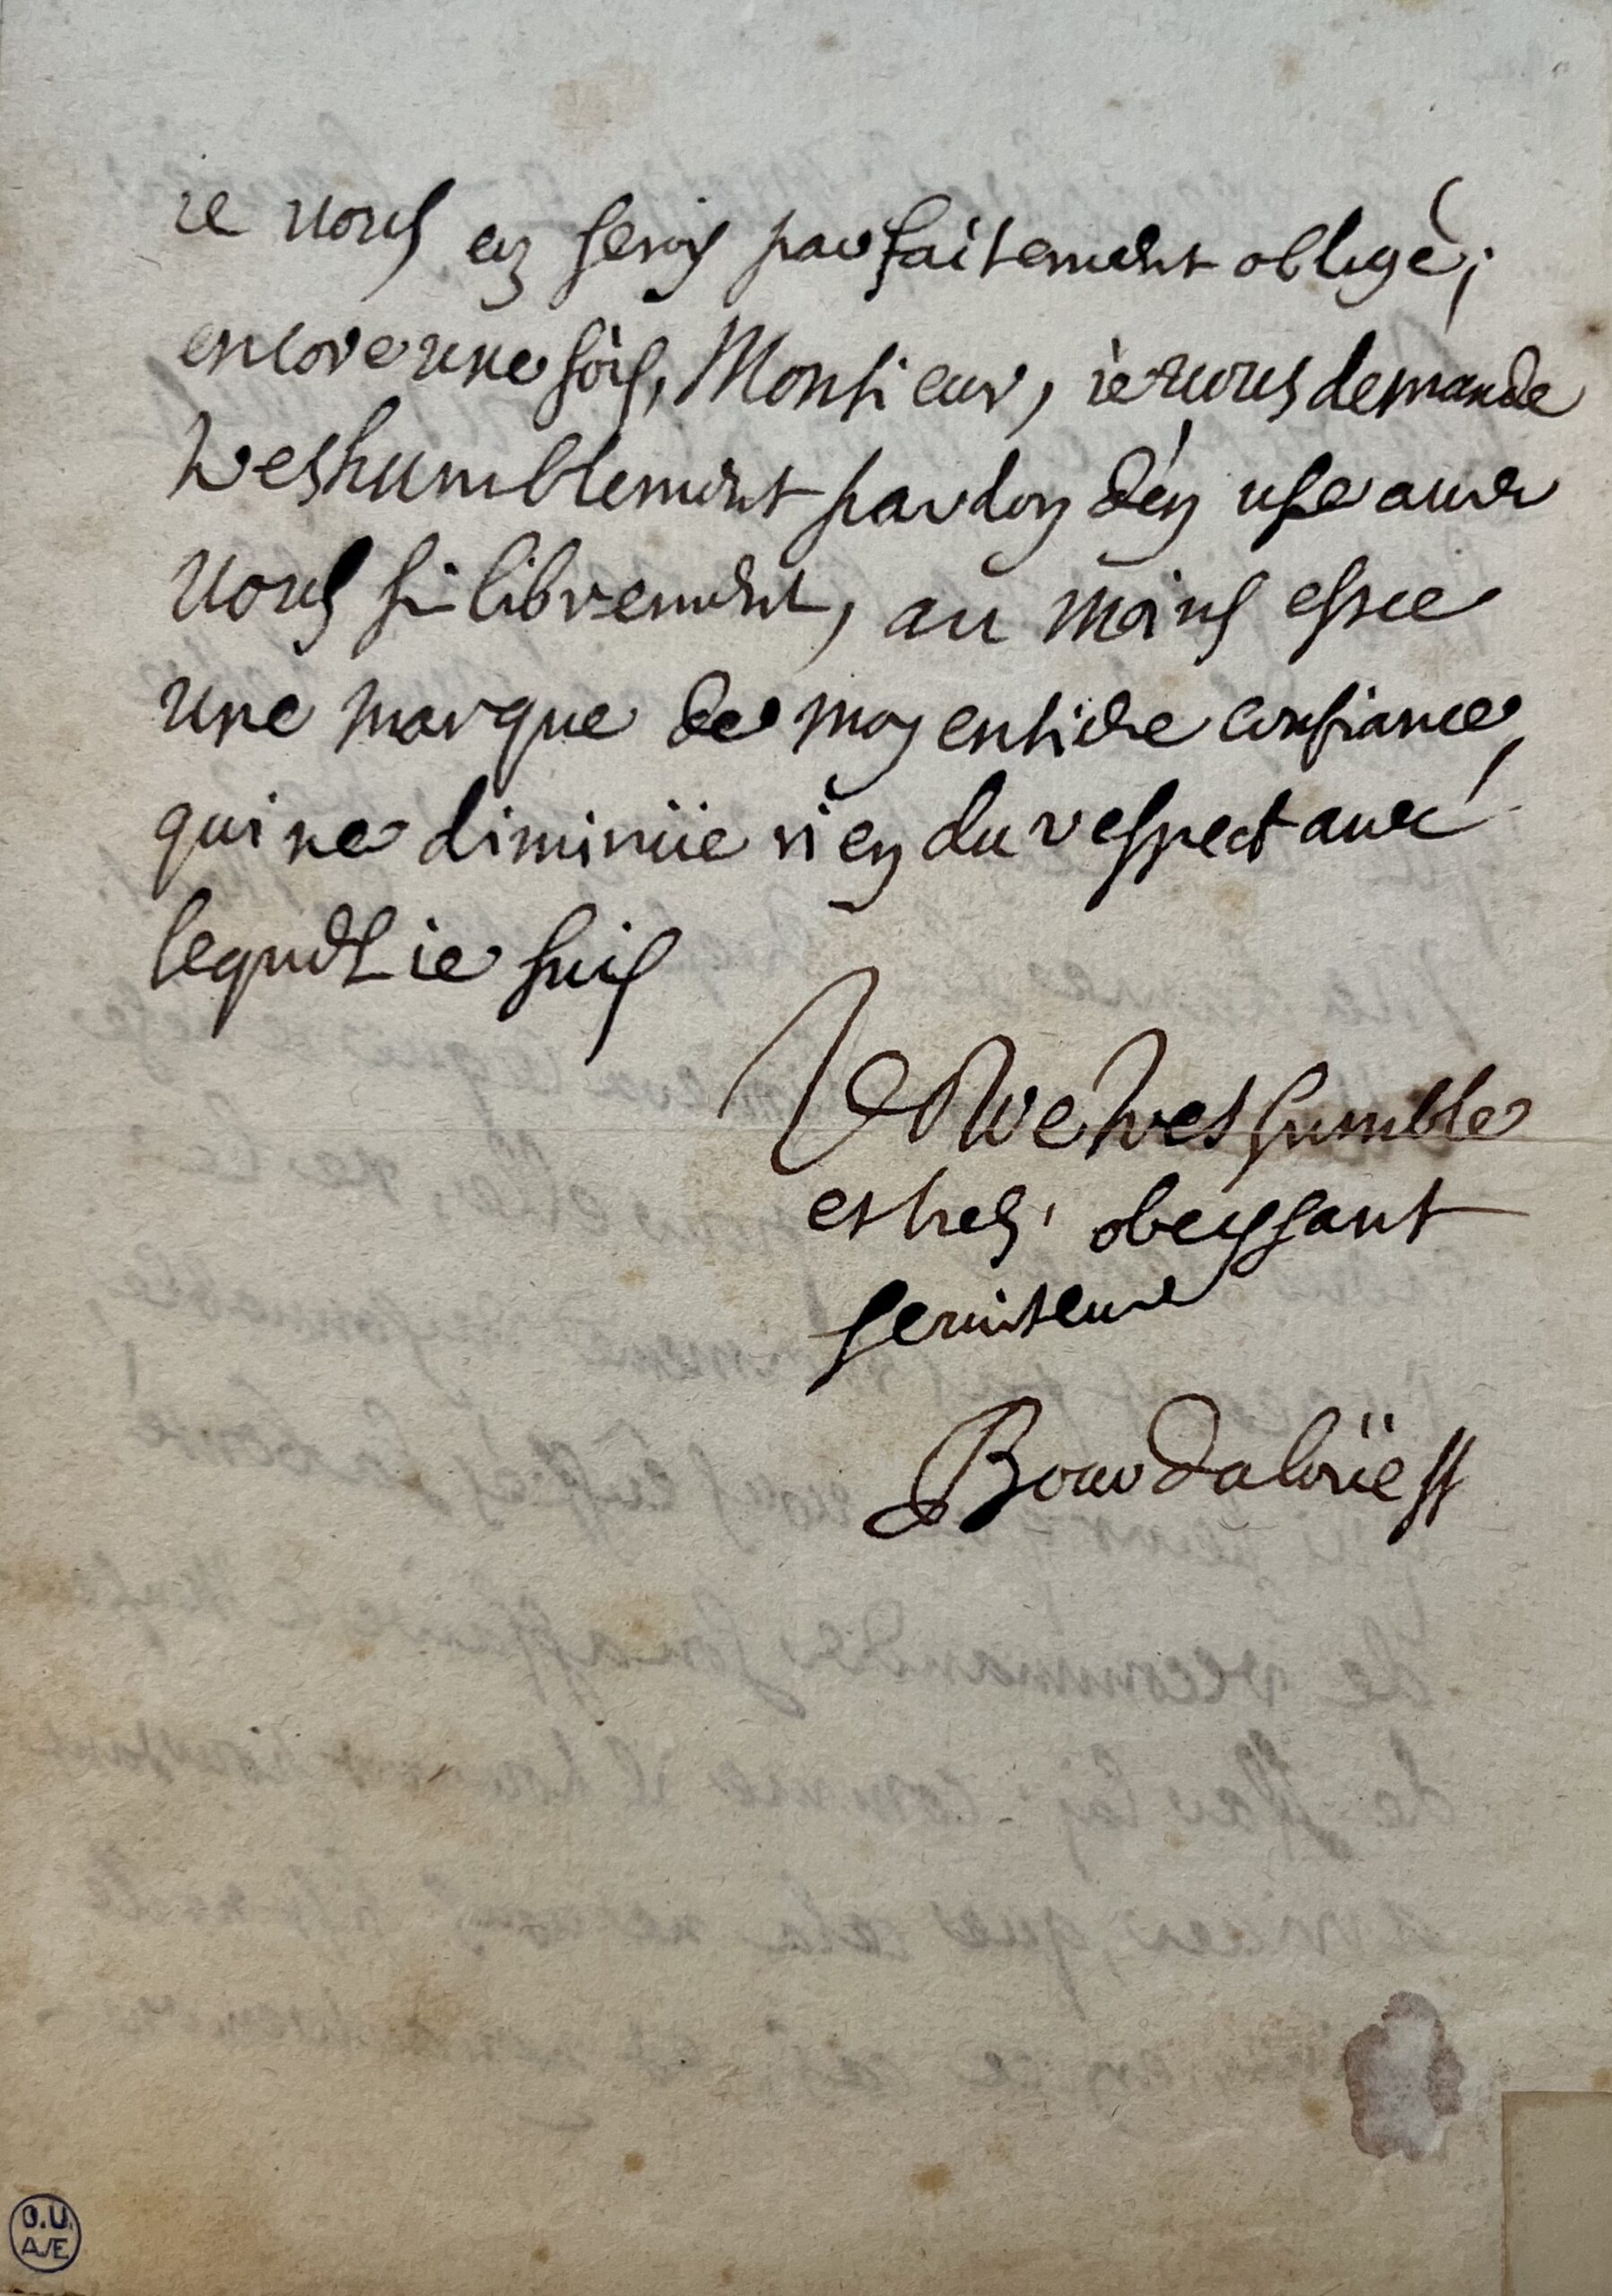 ie vous en serois parfaitement obligé;
encore une fois, Monsieur, ie vous demande
treshumblement pardon d'en user avec
vous si librement, au moins esce
une marque de mon entiere confiance,
qui ne diminüe rien du respect avec
lequel ie suis
Vostre tres humble
et tres obeyssant
serviteur
Bourdaloüe
O.U.
A.E